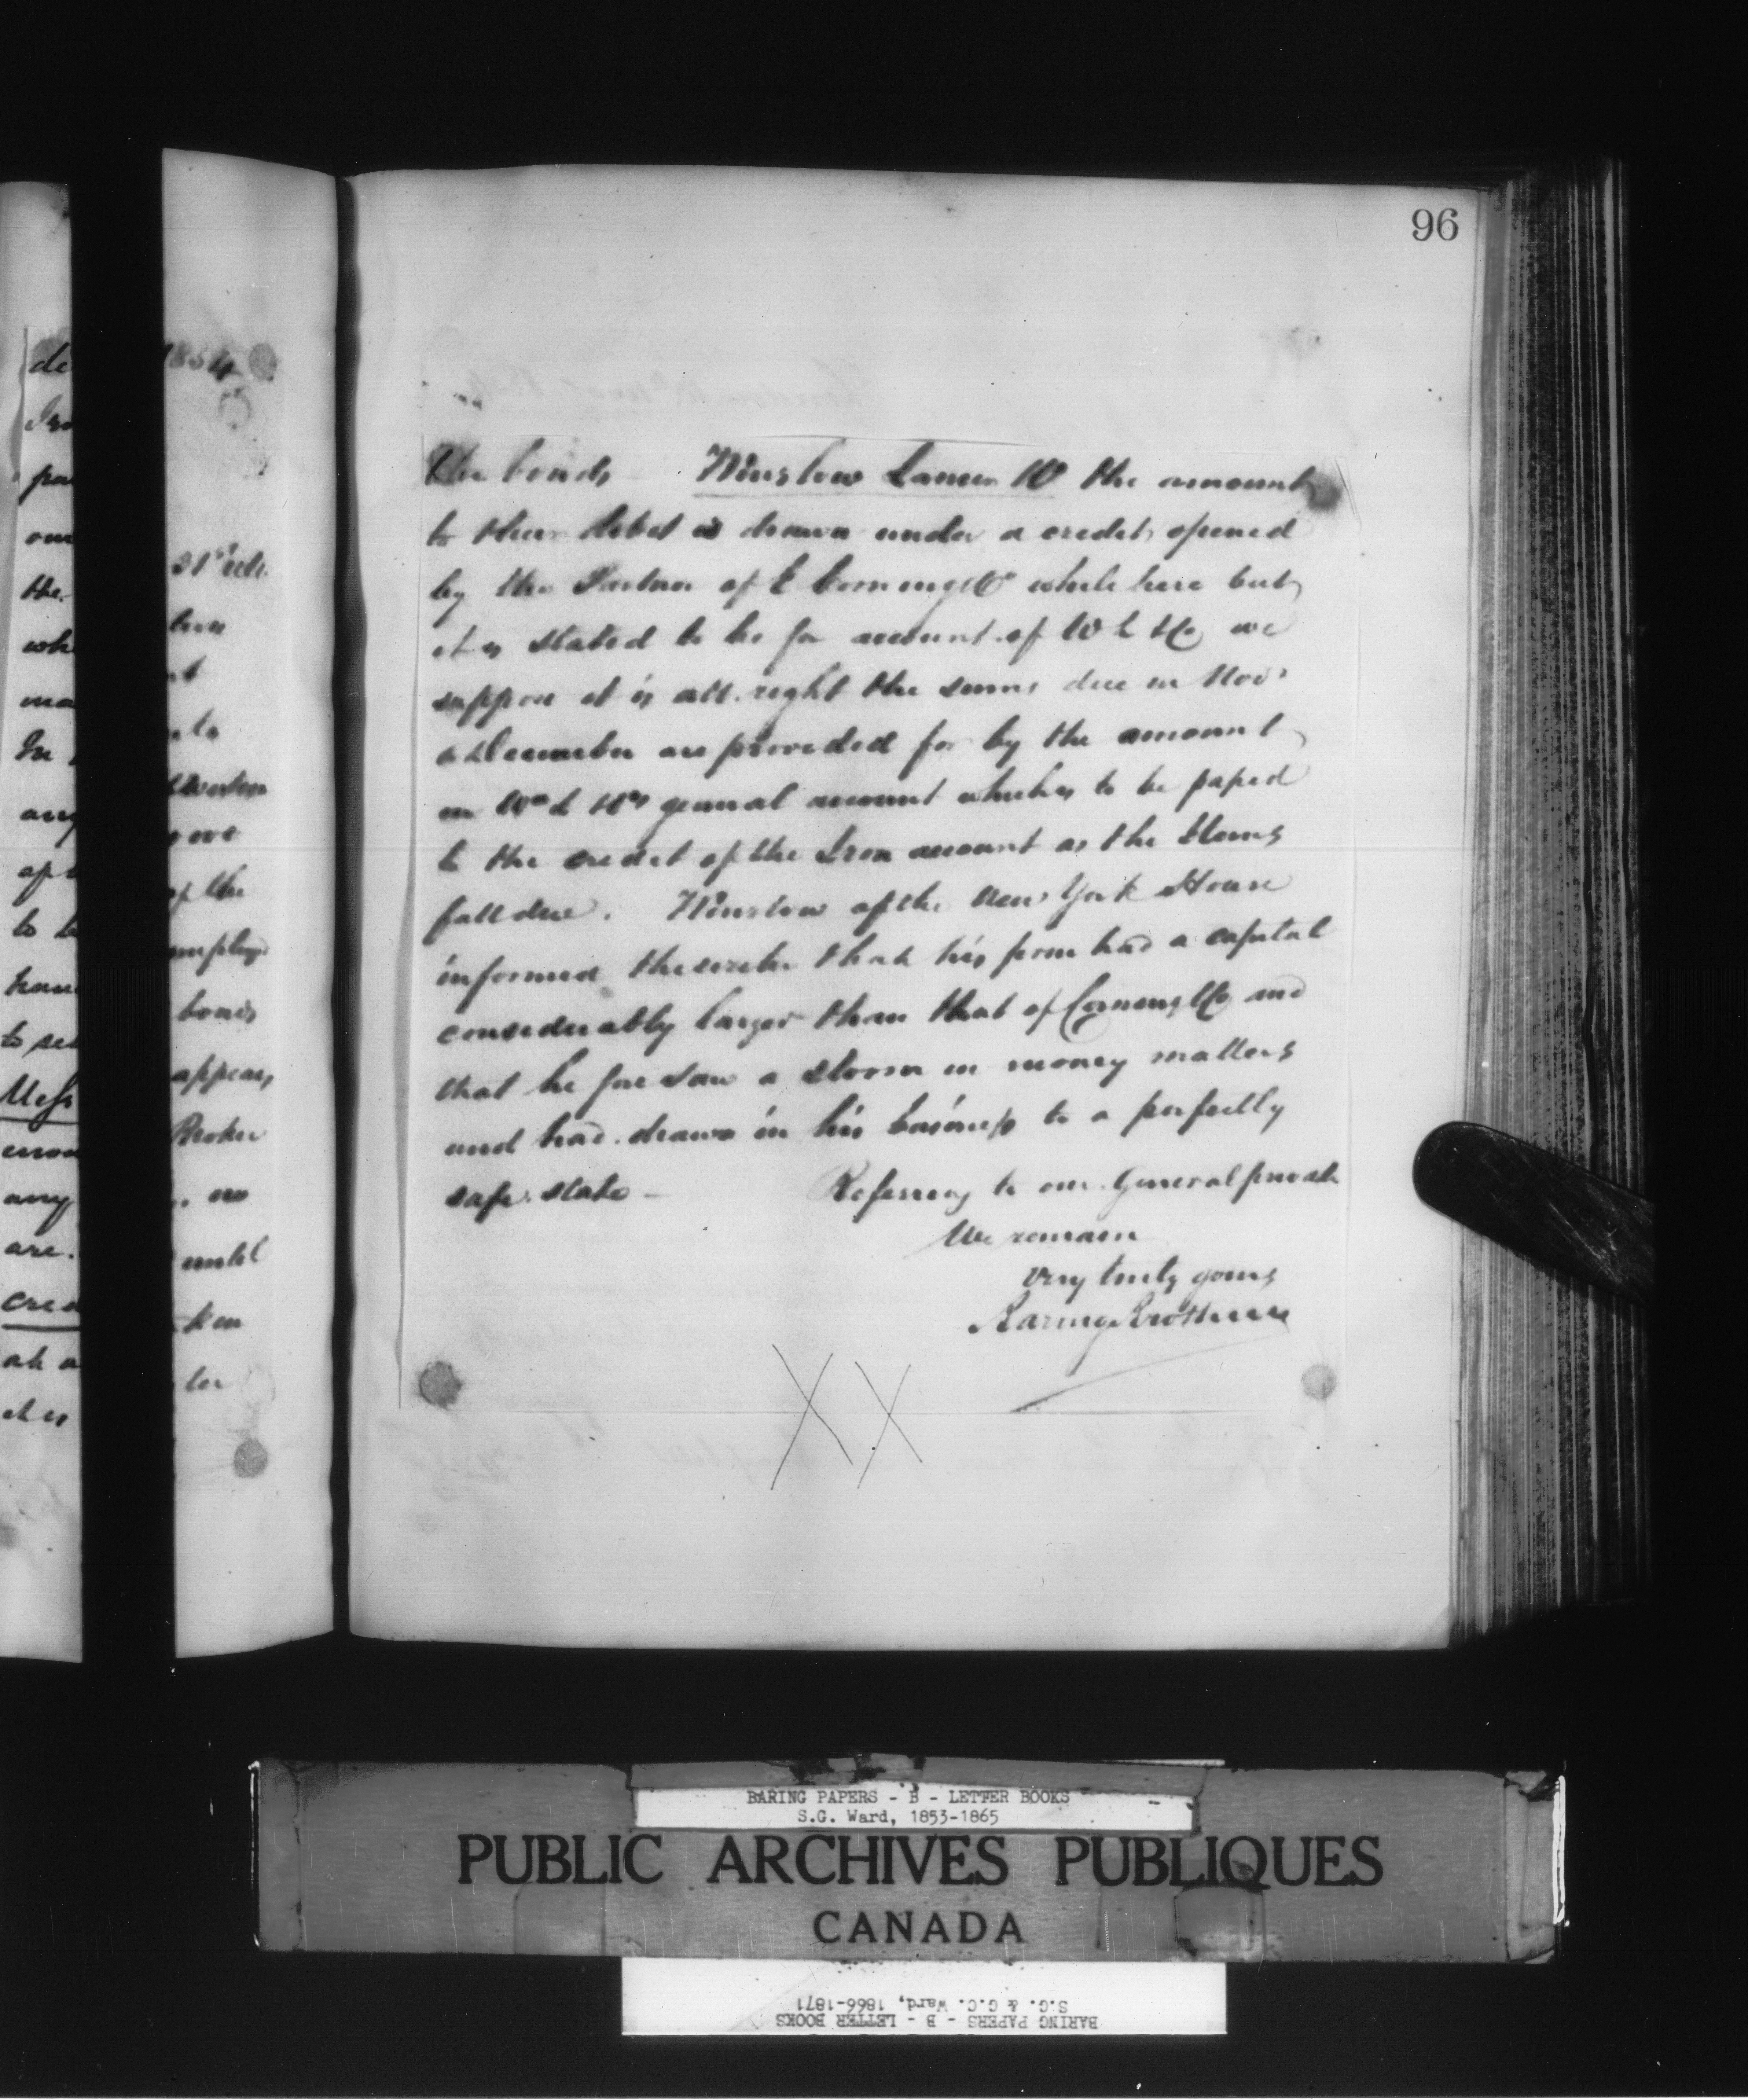 96
the bonds Winslow Lanier &Co the amount
to their debit is drawn under a credit opened
by the Partner of E Corning &Co while here but
it is stated to be for account of W L &Co we
suppose it is all right the sums due in Novr
& December are provided for by the amount
on W L &Co's general account which is to be passed
to the credit of the Iron account as the items
fall due. Winslow of the New York House
informed the writer that his firm had a capital
considerably larger than that of Corning &Co and
that he foresaw a storm in money matters
and had drawn in his business to a perfectly
safe state - Referring to our General private
We remain
Very truly yours
Baring Brothers
XX
1854
31st ult.
of the
employ
bonds
appears
Broker
no
until
BARING PAPERS - B - LETTER BOOKS
S.G. Ward, 1853-1865
PUBLIC ARCHIVES PUBLIQUES
CANADA
BARING PAPERS - B - LETTER BOOKS
S.G. & G.C. Ward, 1866-1871